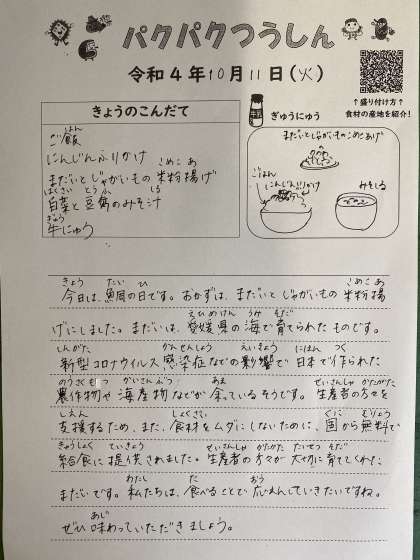 パクパクつうしん
令和4年10月11日(火)
↑盛り付け方↑
食材の産地を紹介!
きょうのこんだて
ご飯
にんじんふりかけ
まだいとじゃがいもの米粉揚げ
白菜と豆腐のみそ汁
牛にゅう
ぎゅうにゅう
まだいとじゃがいものこめこあげ
ごはん
にんじんふりかけ
みそしる
今日は、鯛の日です。おかずは、まだいとじゃがいもの米粉揚
げにしました。まだいは、愛媛県の海で育てられたものです。
新型コロナウイルス感染症などの影響で日本で作られた
農作物や海産物などが余っているそうです。生産者の方々を
支援するため、また、食材をムダにしないために、国から無料で
給食に提供されました。生産者の方々が大切に育ててくれた
まだいです。私たちは、食べることで応えんしていきたいですね。
ぜひ味わっていただきましょう。